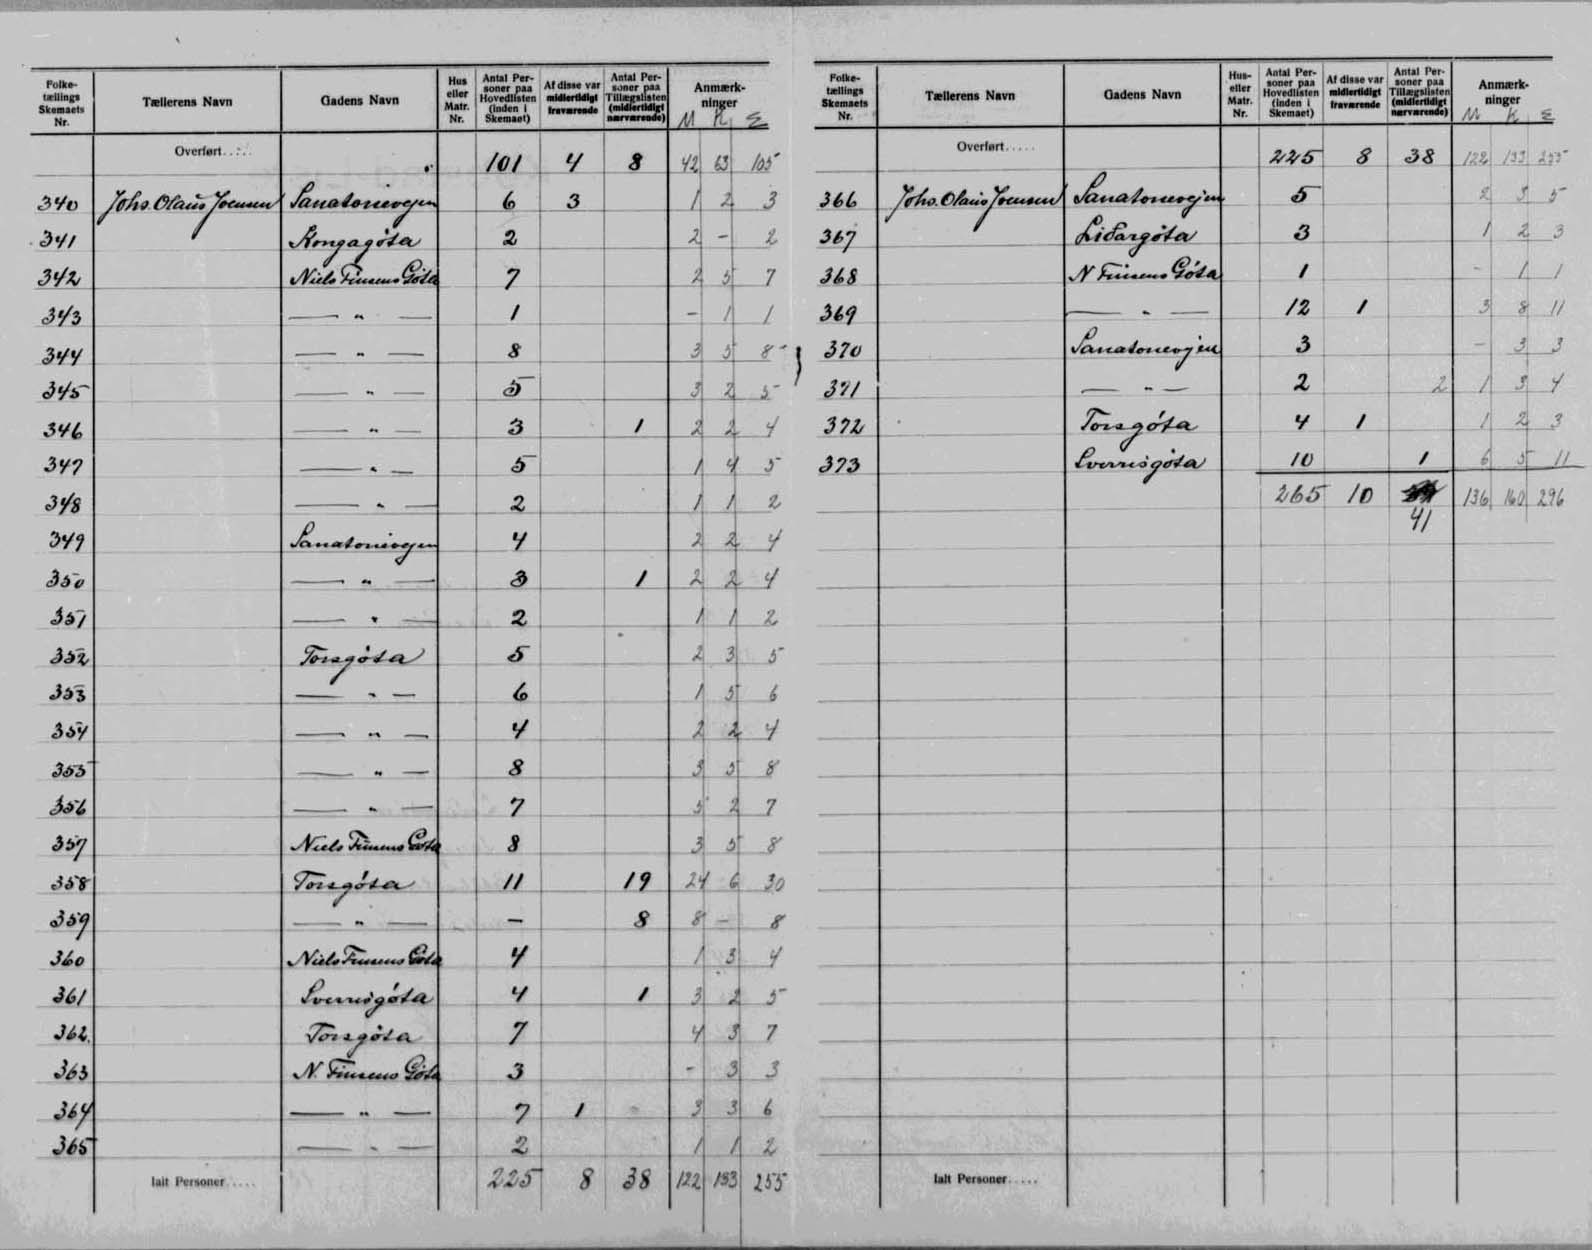 Folke-tællings Skemaets Nr. | Tællerens Navn | Gadens Navn | Hus eller Matr. Nr. | Antal Personer paa Hovedlisten (inden i Skemaet) | Af disse var midlertidigt fraværende | Antal Personer paa Tillægslisten (midlertidigt nærværende) | Anmærk-ninger M K Σ
Overført..... 101 4 8 42 63 105
340 Johs. Olaus Joensen Sanatorievejen 6 3 1 2 3
341 Kongagøta 2 2 - 2
342 Niels Finsens Gøta 7 2 5 7
343 — " — 1 - 1 1
344 — " — 8 3 5 8
345 — " — 5 3 2 5
346 — " — 3 1 2 2 4
347 — " — 5 1 4 5
348 — " — 2 1 1 2
349 Sanatorievejen 4 2 2 4
350 — " — 3 1 2 2 4
351 — " — 2 1 1 2
352 Torsgøta 5 2 3 5
353 — " — 6 1 5 6
354 — " — 4 2 2 4
355 — " — 8 3 5 8
356 — " — 7 5 2 7
357 Niels Finsens Gøta 8 3 5 8
358 Torsgøta 11 19 24 6 30
359 — " — - 8 8 - 8
360 Niels Finsens Gøta 4 1 3 4
361 Sverrisgøta 4 1 3 2 5
362. Torsgøta 7 4 3 7
363 N. Finsens Gøta 3 - 3 3
364 — " — 7 1 3 3 6
365 — " — 2 1 1 2
Ialt Personer..... 225 8 38 122 133 255
Folke-tællings Skemaets Nr. | Tællerens Navn | Gadens Navn | Hus- eller Matr. Nr. | Antal Personer paa Hovedlisten (inden i Skemaet) | Af disse var midlertidigt fraværende | Antal Personer paa Tillægslisten (midlertidigt nærværende) | Anmærk-ninger M K Σ
Overført..... 225 8 38 122 133 255
366 Johs. Olaus Joensen Sanatorievejen 5 2 3 5
367 Liđargøta 3 1 2 3
368 N Finsens Gøta 1 - 1 1
369 — " — 12 1 3 8 11
370 Sanatorievjen 3 - 3 3
371 — " — 2 2 1 3 4
372 Torsgøta 4 1 1 2 3
373 Sverrisgøta 10 1 6 5 11
265 10 136 160 296
41
Ialt Personer.....